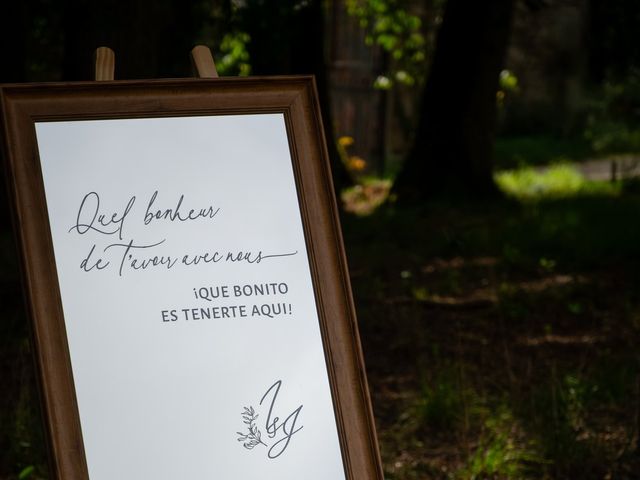 Quel bonheur
de T'avoir avec nous
¡QUE BONITO
ES TENERTE AQUI!
I&J